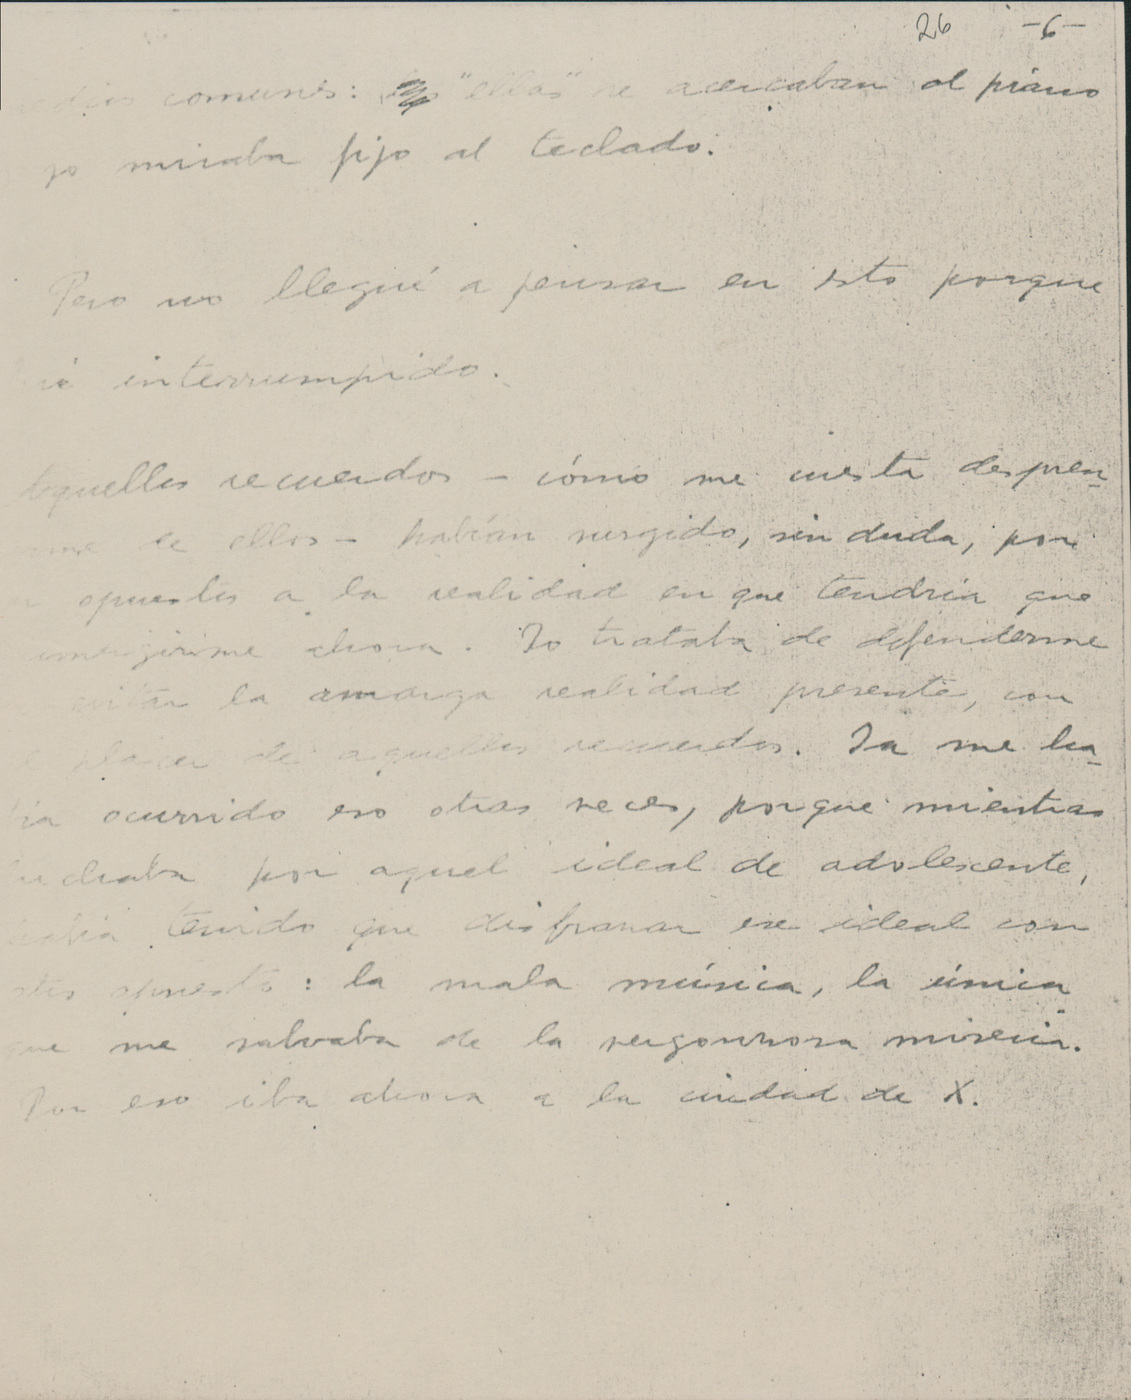 26 -6-
comunes: "ellas" se acercaban al piano
yo miraba fijo al teclado.
Pero no llegué a pensar en esto porque
interrumpido.
Aquellos recuerdos - cómo me cuesta despren-
me de ellos - habían surgido, sin duda, por
opuestos a la realidad en que tendría que
sumergirme ahora. Yo trataba de defenderme
evitar la amarga realidad presente, con
placer de aquellos recuerdos. Ya me ha-
bía ocurrido eso otras veces, porque mientras
luchaba por aquel ideal de adolescente,
había tenido que disfrazar ese ideal con
opuesto: la mala música, la única
que me salvaba de la vergonzosa miseria.
Por eso iba ahora a la ciudad de X.